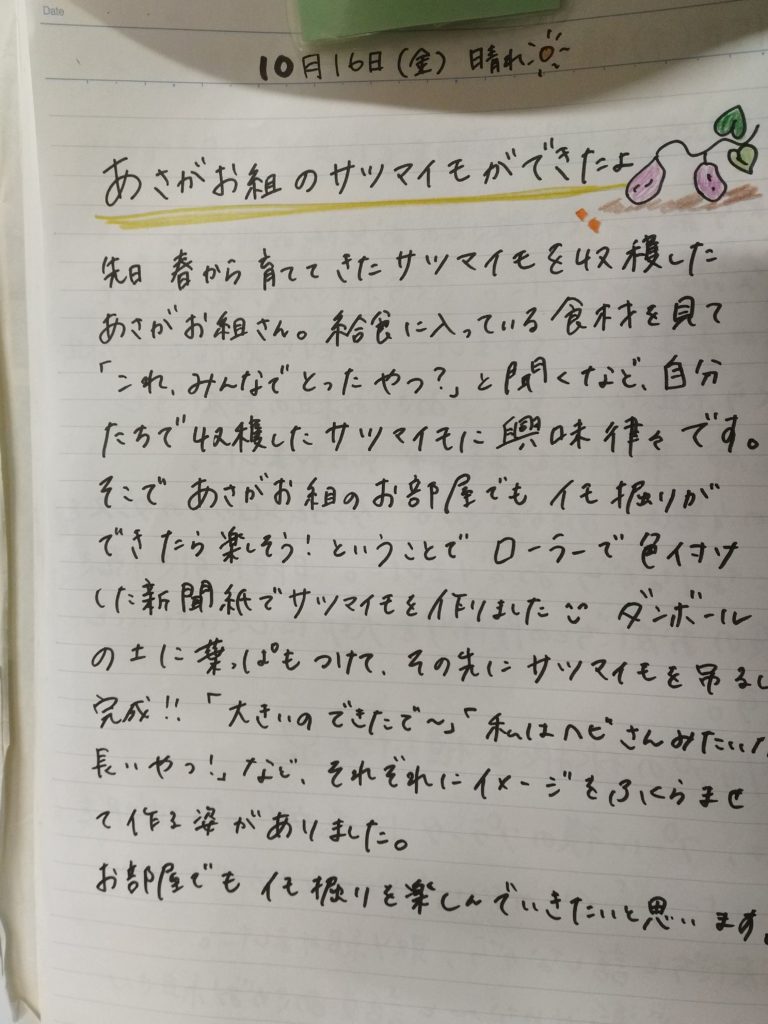 Date
10月16日(金) 晴れ
あさがお組のサツマイモができたよ
先日 春から育ててきたサツマイモを収穫した
あさがお組さん。給食に入っている食材を見て
「これ、みんなでとったやつ?」と聞くなど、自分
たちで収穫したサツマイモに興味律々です。
そこで あさがお組のお部屋でも イモ掘りが
できたら楽しそう!ということで ローラーで色付け
した新聞紙でサツマイモを作りました ダンボール
の土に葉っぱもつけて、その先にサツマイモを吊るし
完成!!「大きいのできたで〜」「私はヘビさんみたいな
長いやつ!」など、それぞれにイメージをふくらませ
て作る姿がありました。
お部屋でも イモ掘りを楽しんでいきたいと思います。